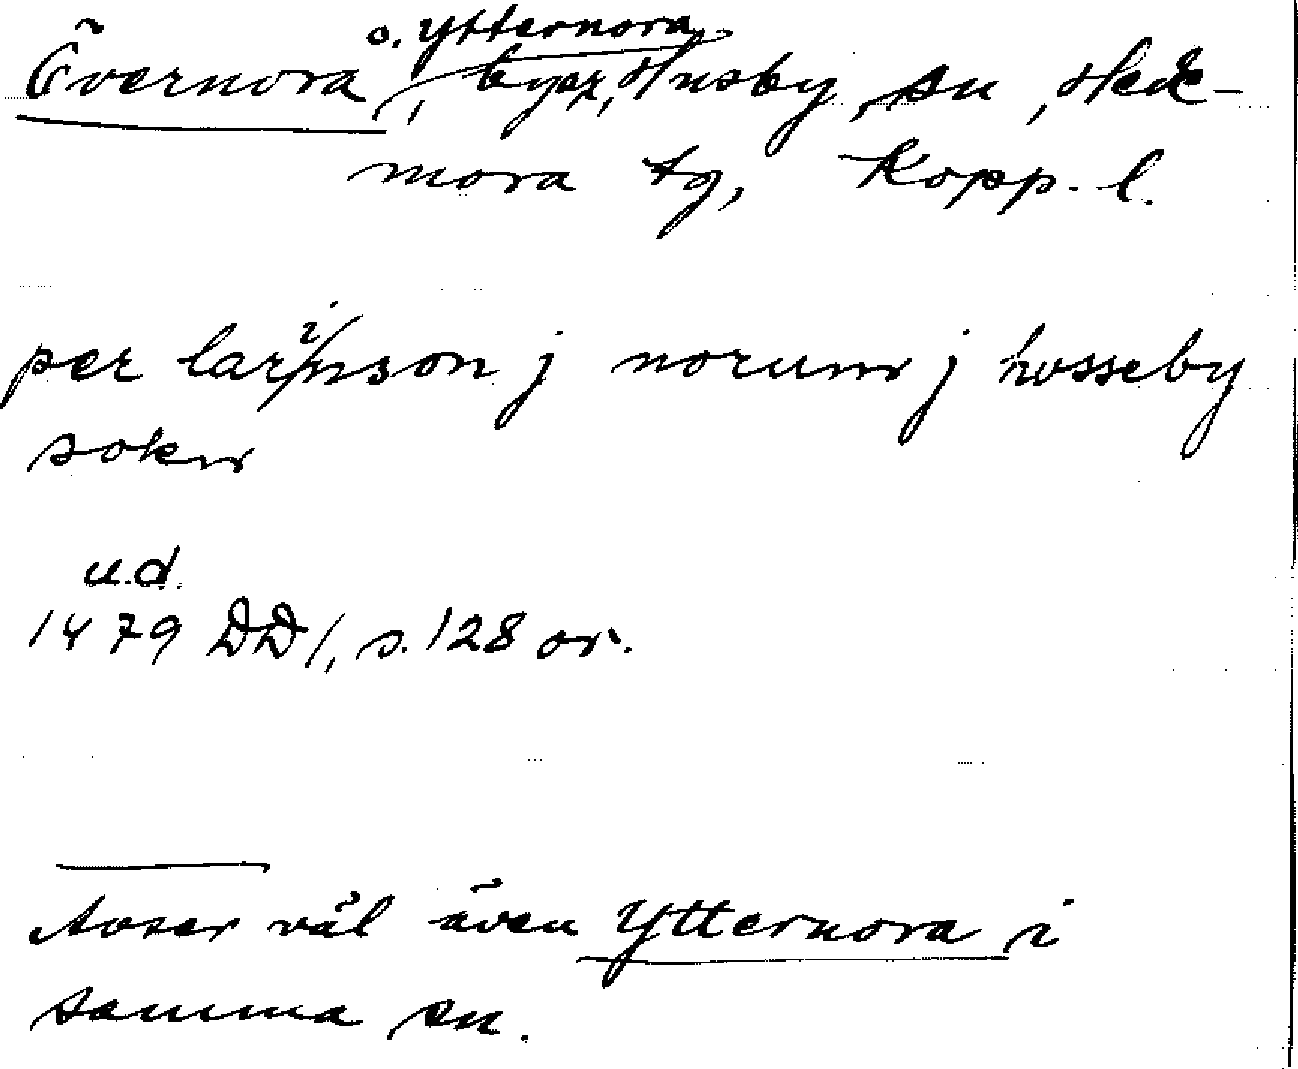 o. Ytternora
Övernora, byar, Husby sn, Hede-
mora tg, Kopp. l.
per larinson j norum j hosseby
sokn
u.d.
1479 DD 1, s. 128 or.
Avser väl även Ytternora i
samma sn.